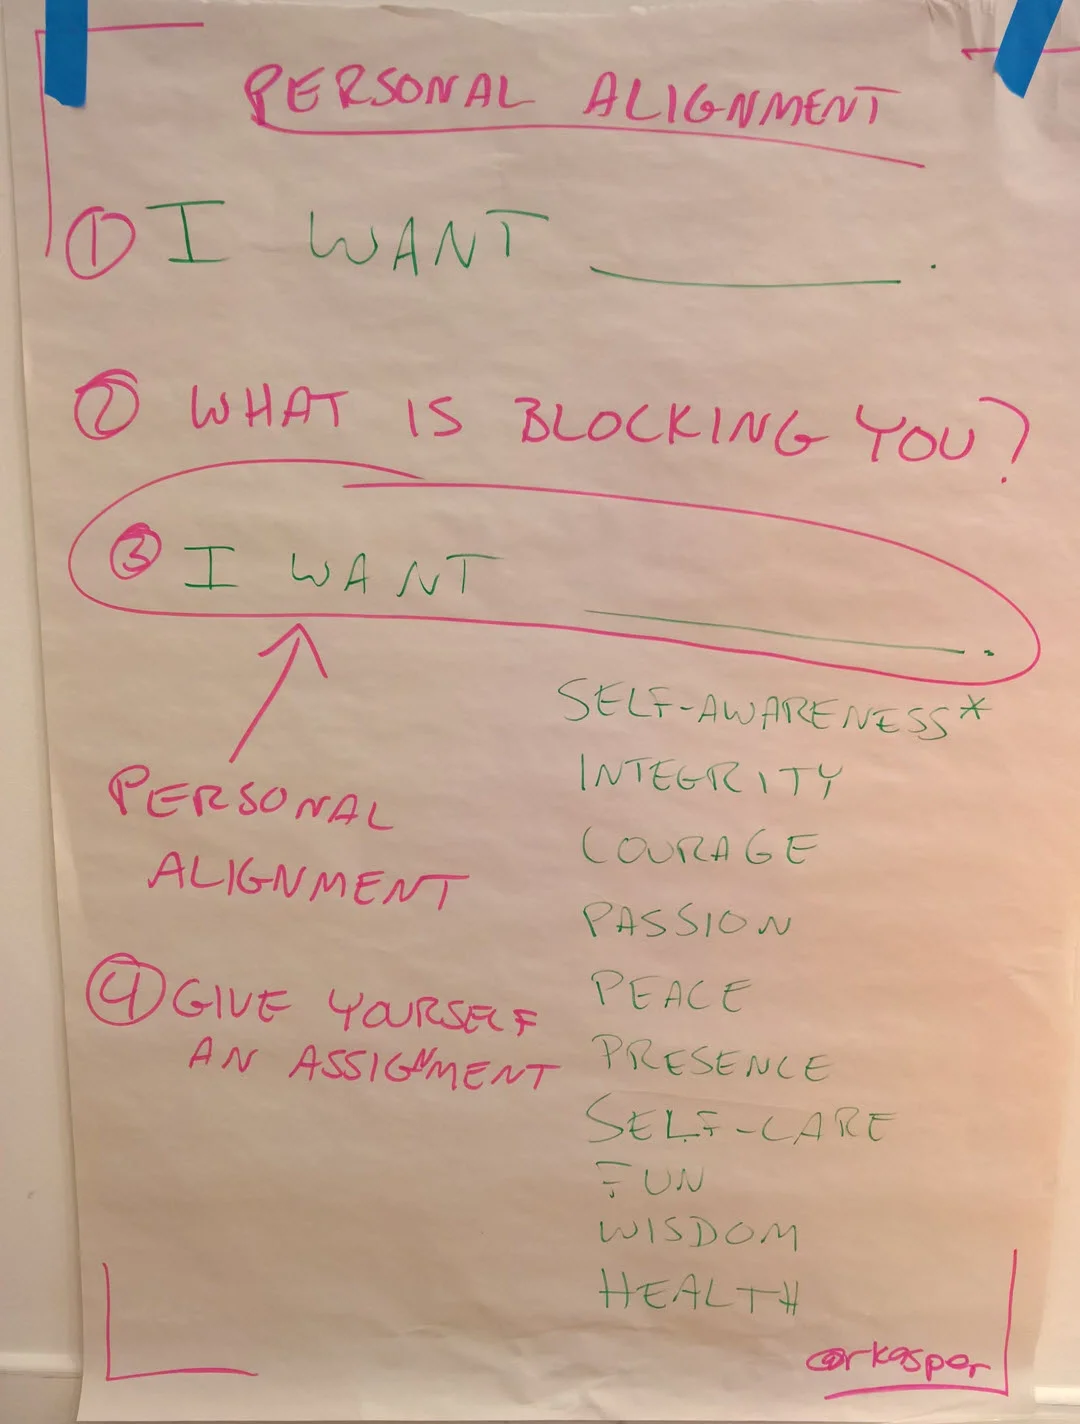 PERSONAL ALIGNMENT
① I WANT ________.
② WHAT IS BLOCKING YOU?
③ I WANT ________.
SELF-AWARENESS*
INTEGRITY
COURAGE
PASSION
PEACE
PRESENCE
SELF-CARE
FUN
WISDOM
HEALTH
PERSONAL
ALIGNMENT
④ GIVE YOURSELF
AN ASSIGNMENT
@rkasper